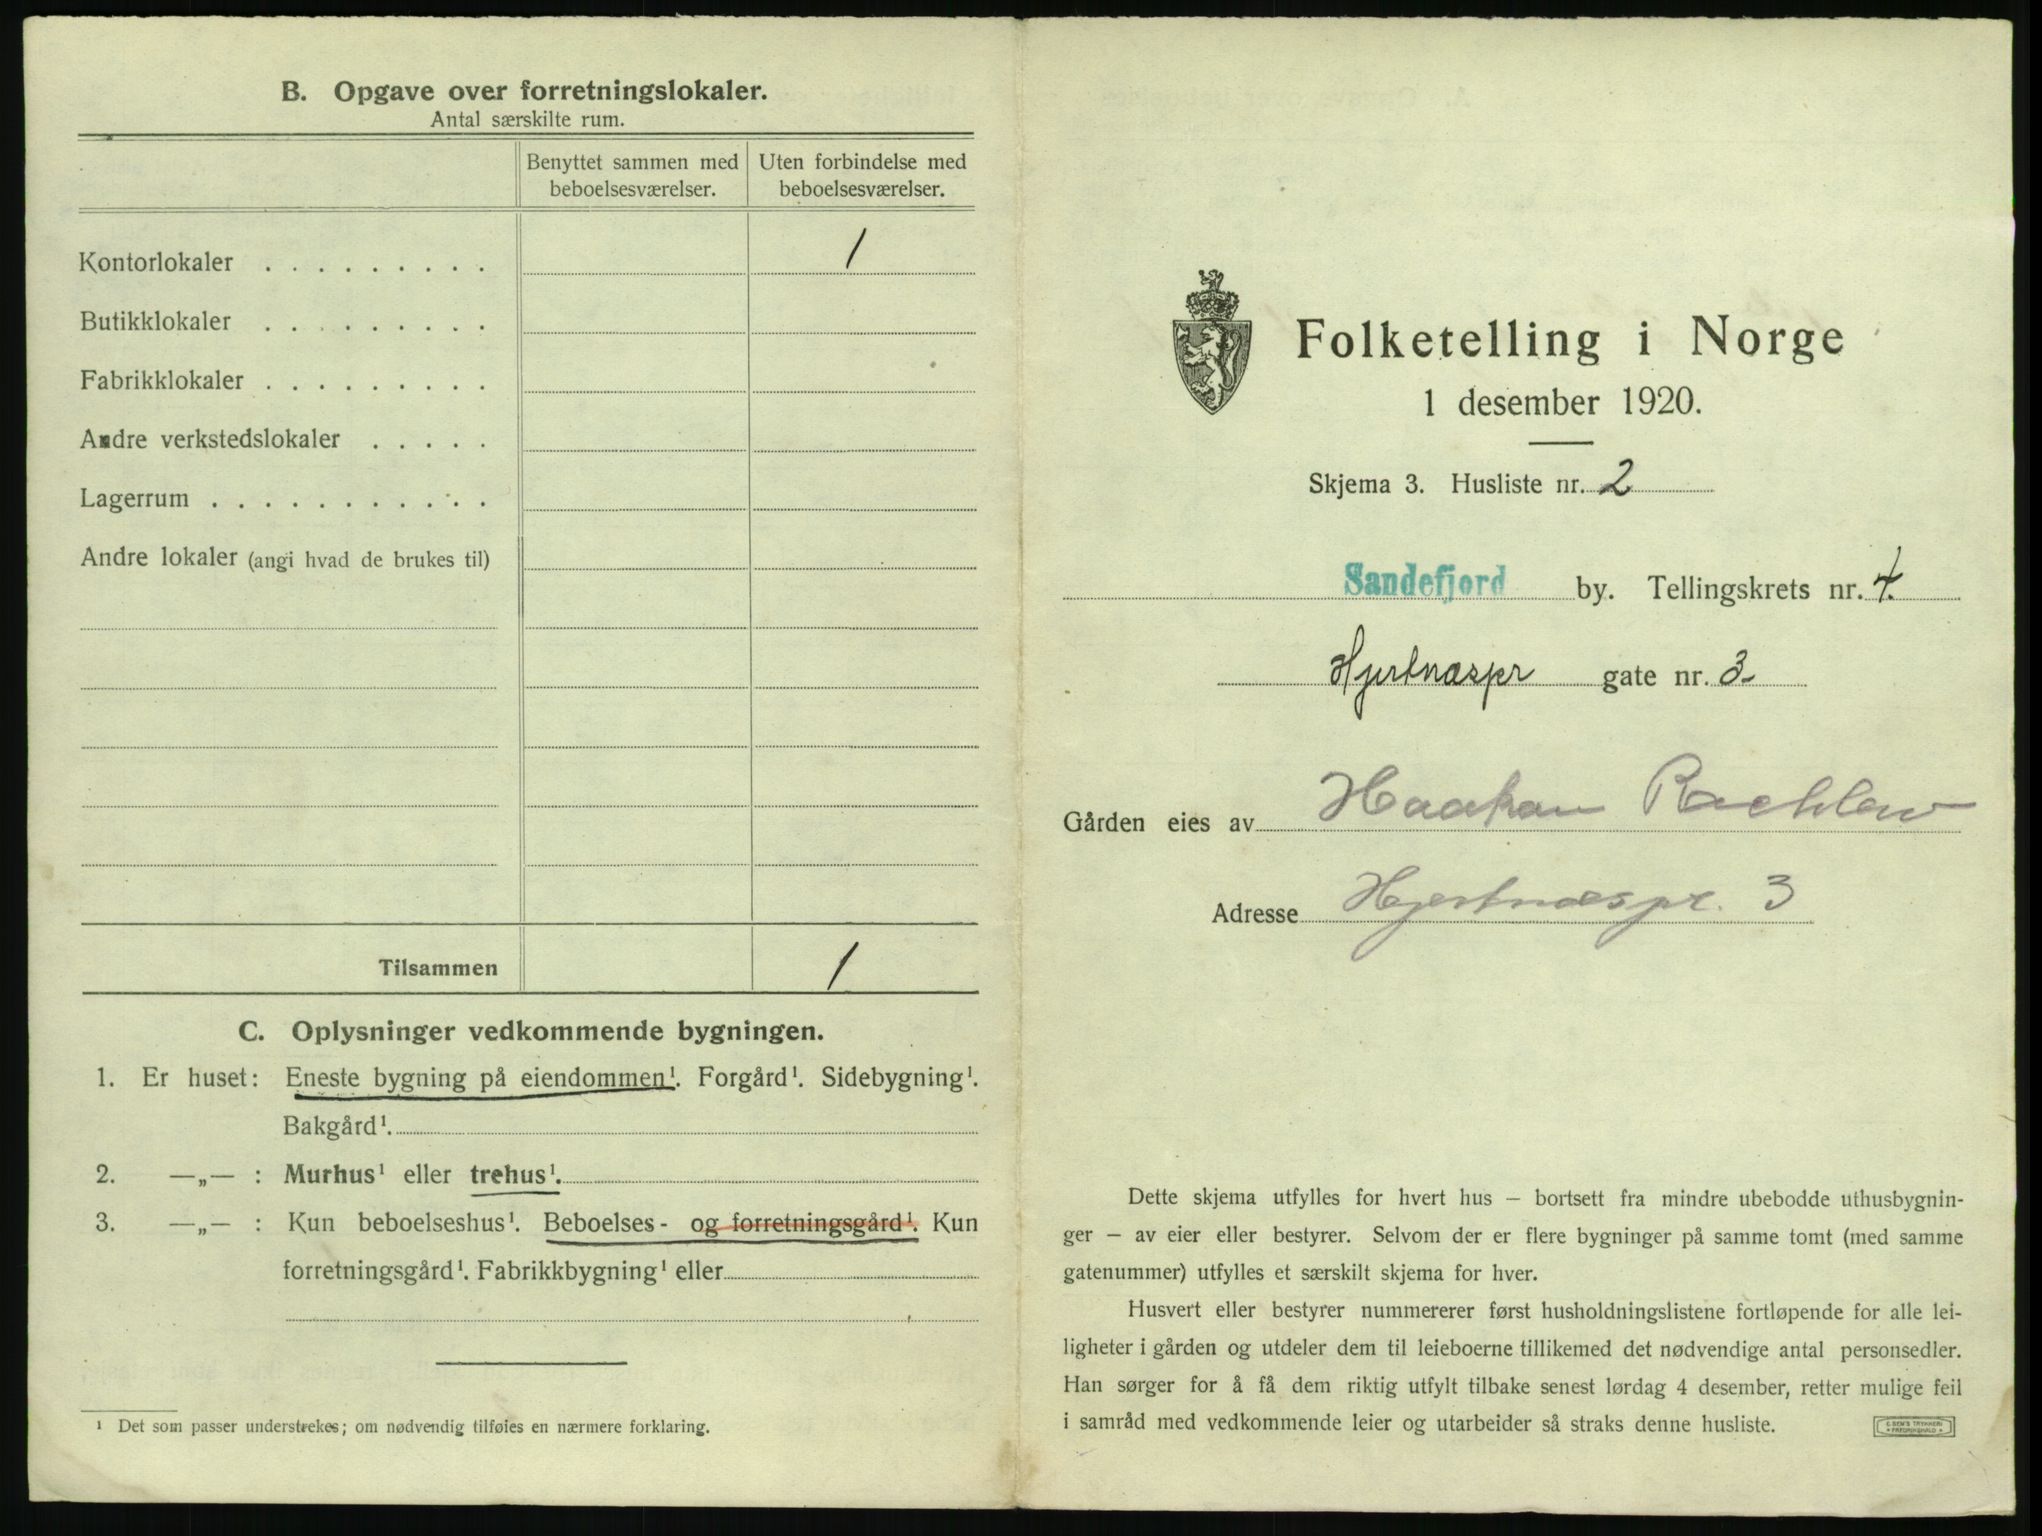 B. Opgave over forretningslokaler.
Antal særskilte rum.
Benyttet sammen med beboelsesværelser.
Uten forbindelse med beboelsesværelser.
Kontorlokaler . . . . . . . . . 1
Butikklokaler . . . . . . . . .
Fabrikklokaler . . . . . . . . .
Andre verkstedslokaler . . . . .
Lagerrum . . . . . . . . . . .
Andre lokaler (angi hvad de brukes til)
Tilsammen 1
C. Oplysninger vedkommende bygningen.
1. Er huset: Eneste bygning på eiendommen¹. Forgård¹. Sidebygning¹.
Bakgård¹.
2. —„— : Murhus¹ eller trehus¹.
3. —„— : Kun beboelseshus¹. Beboelses- og forretningsgård¹. Kun
forretningsgård¹. Fabrikkbygning¹ eller
¹ Det som passer understrekes; om nødvendig tilføies en nærmere forklaring.
Folketelling i Norge
1 desember 1920.
Skjema 3. Husliste nr. 2
Sandefjord by. Tellingskrets nr. 4.
Hjertnæspr gate nr. 3-
Gården eies av Haakon Rachlew
Adresse Hjertnæspr. 3
Dette skjema utfylles for hvert hus – bortsett fra mindre ubebodde uthusbygnin-
ger – av eier eller bestyrer. Selvom der er flere bygninger på samme tomt (med samme
gatenummer) utfylles et særskilt skjema for hver.
Husvert eller bestyrer nummererer først husholdningslistene fortløpende for alle lei-
ligheter i gården og utdeler dem til leieboerne tillikemed det nødvendige antal personsedler.
Han sørger for å få dem riktig utfylt tilbake senest lørdag 4 desember, retter mulige feil
i samråd med vedkommende leier og utarbeider så straks denne husliste.
E SEM'S TRYKKERI
FREDRIKSHALD